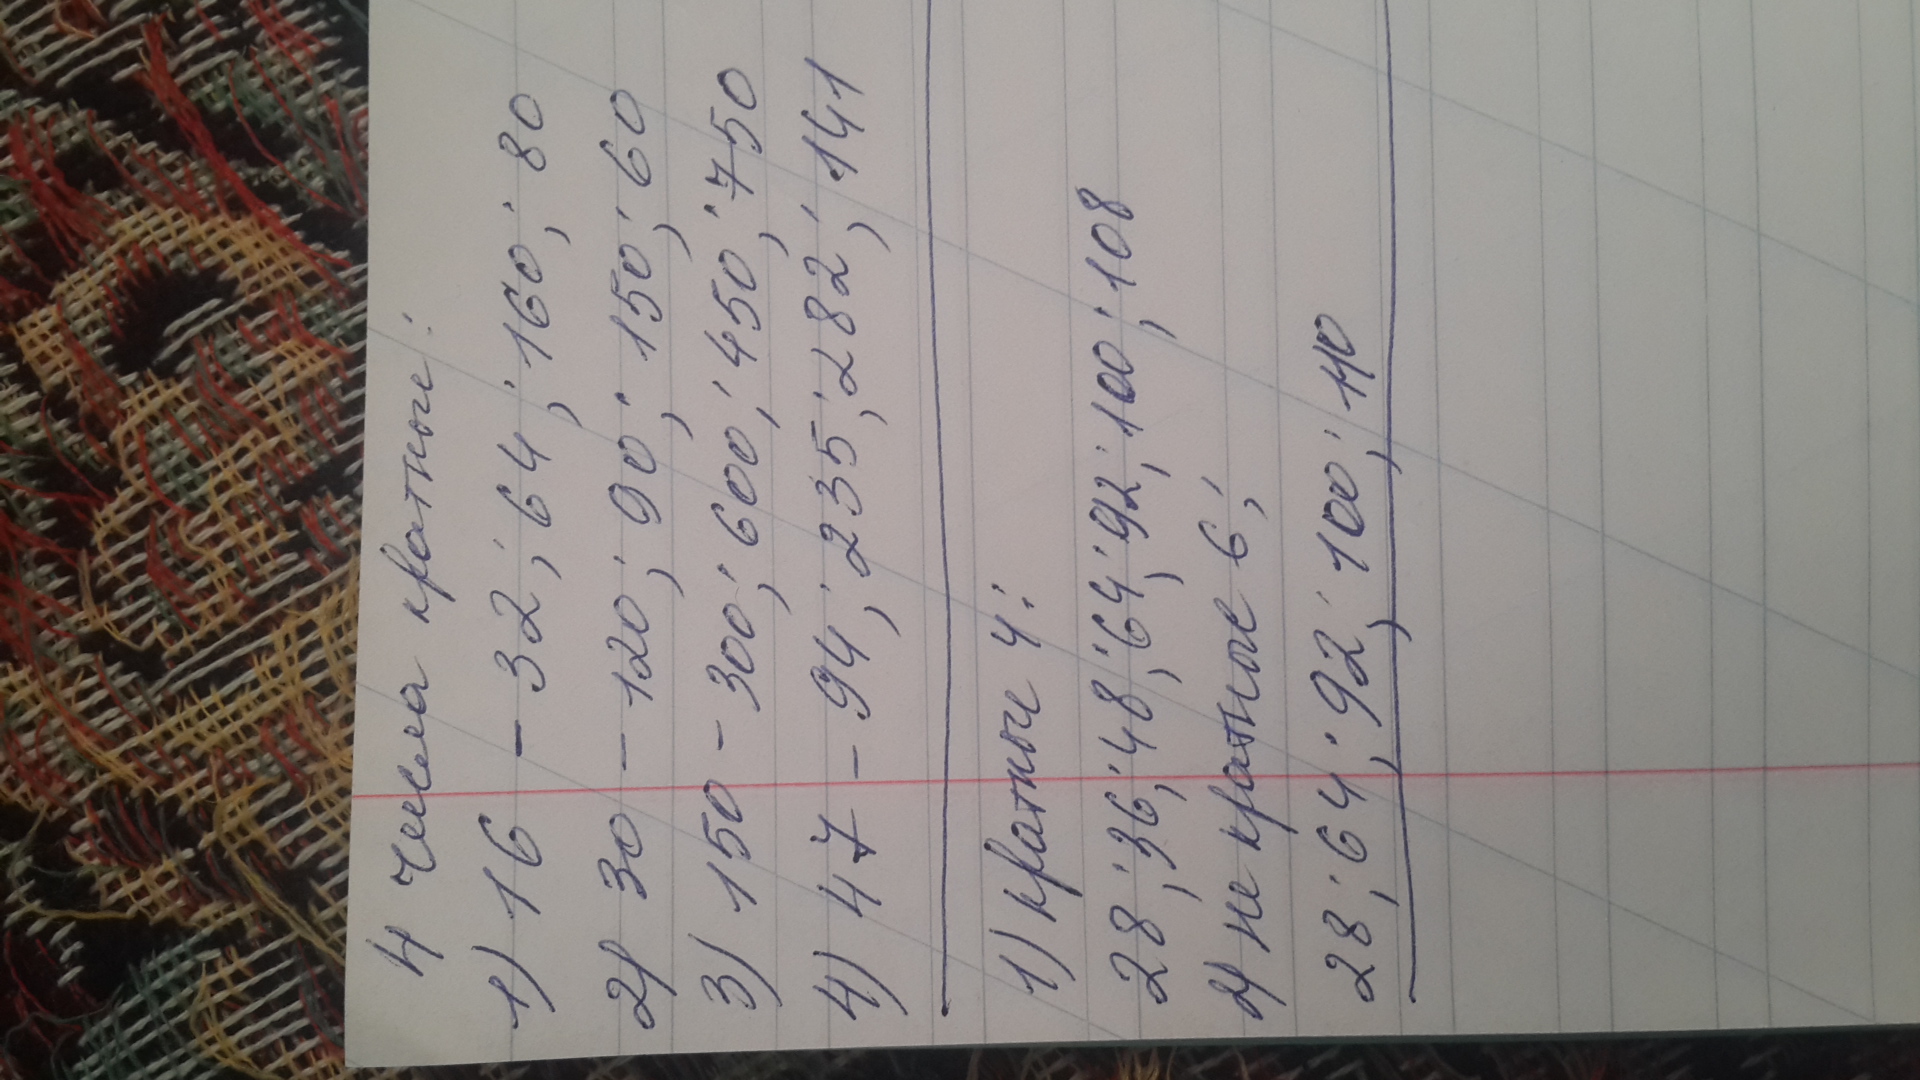 4 числа кратные:
1) 16 - 32; 64; 160; 80
2) 30 - 120; 90; 150; 60
3) 150 - 300; 600; 450; 750
4) 47 - 94; 235; 282; 141
1) кратные 4:
28; 36; 48; 64; 92; 100; 108
2) не кратные 6;
28; 64; 92; 100; 110